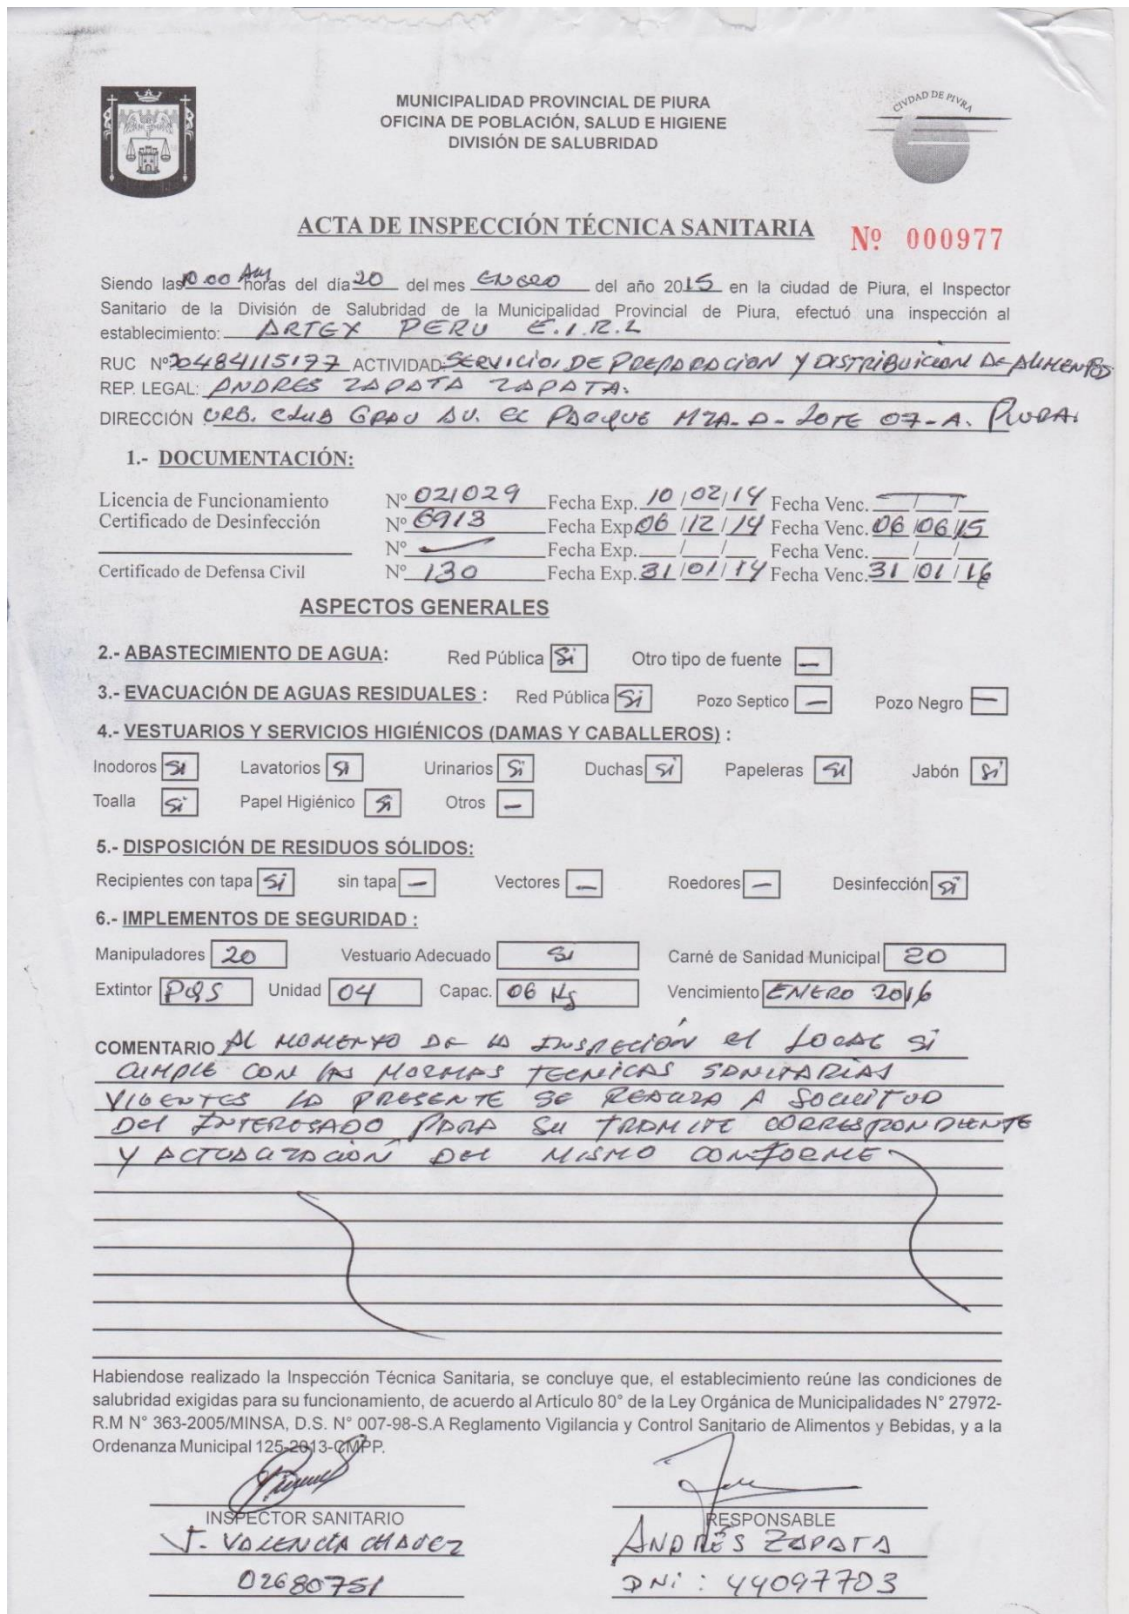 MUNICIPALIDAD PROVINCIAL DE PIURA
OFICINA DE POBLACIÓN, SALUD E HIGIENE
DIVISIÓN DE SALUBRIDAD
CIVDAD DE PIVRA
ACTA DE INSPECCIÓN TÉCNICA SANITARIA
Nº 000977
Siendo las 10.00 Am horas del día 20 del mes ENERO del año 2015 en la ciudad de Piura, el Inspector
Sanitario de la División de Salubridad de la Municipalidad Provincial de Piura, efectuó una inspección al
establecimiento: ARTEX PERU E.I.R.L
RUC Nº 20484115177 ACTIVIDAD: SERVICIOS DE PREPARACION Y DISTRIBUICION DE ALIMENTOS
REP. LEGAL: ANDRES ZAPATA ZAPATA.
DIRECCIÓN URB. CLUB GRAU AV. EL PARQUE MZA-D- LOTE 07-A. PIURA.
1.- DOCUMENTACIÓN:
Licencia de Funcionamiento Nº 021029 Fecha Exp. 10/02/14 Fecha Venc. / /
Certificado de Desinfección Nº 6913 Fecha Exp. 06/12/14 Fecha Venc. 06/06/15
Nº — Fecha Exp. / / Fecha Venc. / /
Certificado de Defensa Civil Nº 130 Fecha Exp. 31/01/14 Fecha Venc. 31/01/16
ASPECTOS GENERALES
2.- ABASTECIMIENTO DE AGUA: Red Pública Si Otro tipo de fuente —
3.- EVACUACIÓN DE AGUAS RESIDUALES : Red Pública Si Pozo Septico — Pozo Negro —
4.- VESTUARIOS Y SERVICIOS HIGIÉNICOS (DAMAS Y CABALLEROS) :
Inodoros Si Lavatorios Si Urinarios Si Duchas Si Papeleras Si Jabón Si
Toalla Si Papel Higiénico Si Otros —
5.- DISPOSICIÓN DE RESIDUOS SÓLIDOS:
Recipientes con tapa Si sin tapa — Vectores — Roedores — Desinfección Si
6.- IMPLEMENTOS DE SEGURIDAD :
Manipuladores 20 Vestuario Adecuado Si Carné de Sanidad Municipal 20
Extintor PQS Unidad 04 Capac. 06 Kg Vencimiento ENERO 2016
COMENTARIO AL MOMENTO DE LA INSPECIÓN El LOCAL SI
CUMPLE CON LAS NORMAS TECNICAS SANITARIAS
VIGENTES LA PRESENTE SE REALIZA A SOLICITUD
DEL INTERESADO PARA SU TRAMITE CORRESPONDIENTE
Y ACTUALIZACIÓN DEL MISMO CONFORME
Habiendose realizado la Inspección Técnica Sanitaria, se concluye que, el establecimiento reúne las condiciones de
salubridad exigidas para su funcionamiento, de acuerdo al Articulo 80° de la Ley Orgánica de Municipalidades N° 27972-
R.M N° 363-2005/MINSA, D.S. N° 007-98-S.A Reglamento Vigilancia y Control Sanitario de Alimentos y Bebidas, y a la
Ordenanza Municipal 125-2013-CMPP.
INSPECTOR SANITARIO RESPONSABLE
J. VALENCIA CHAVEZ ANDRÉS ZAPATA
02680751 DNi : 44097703